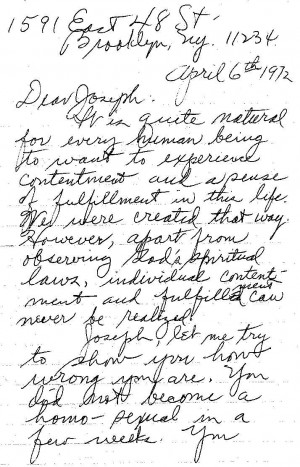 1591 East 48 St.
Brooklyn, Ny. 11234
April 6th 1972
Dear Joseph.
It is quite natural
for every human being
to want to experience
contentment and a sense
of fulfillment in this life.
We were created that way.
However, apart from
observing God's spiritual
laws, individual content-
ment and fulfillment can
never be realized.
Joseph, let me try
to show you how
wrong you are. You
did not become a
homo-sexual in a
few weeks. You